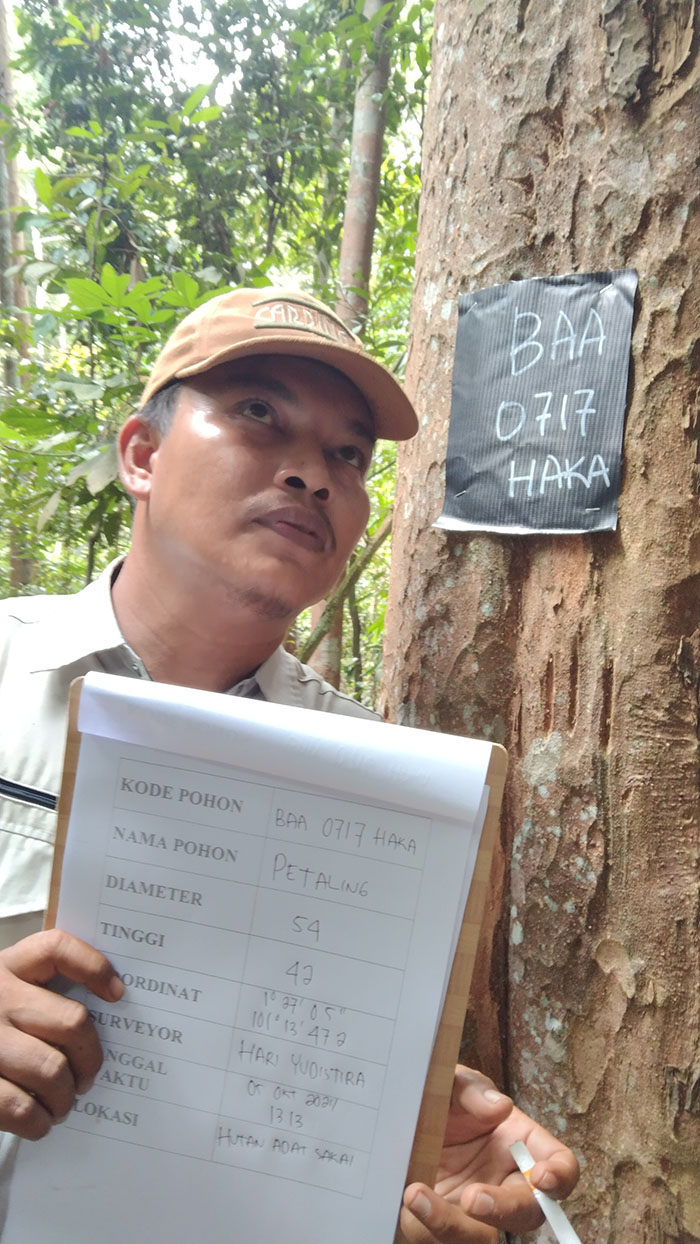 BAA
0717
HAKA
KODE POHON BAA 0717 HAKA
NAMA POHON PETALING
DIAMETER 54
TINGGI 42
OORDINAT 1° 27' 0 5"
101° 13' 47 2
SURVEYOR HARI YUDISTIRA
NGGAL 05 OKT 2021
AKTU 1313
LOKASI HUTAN ADAT SAKAI